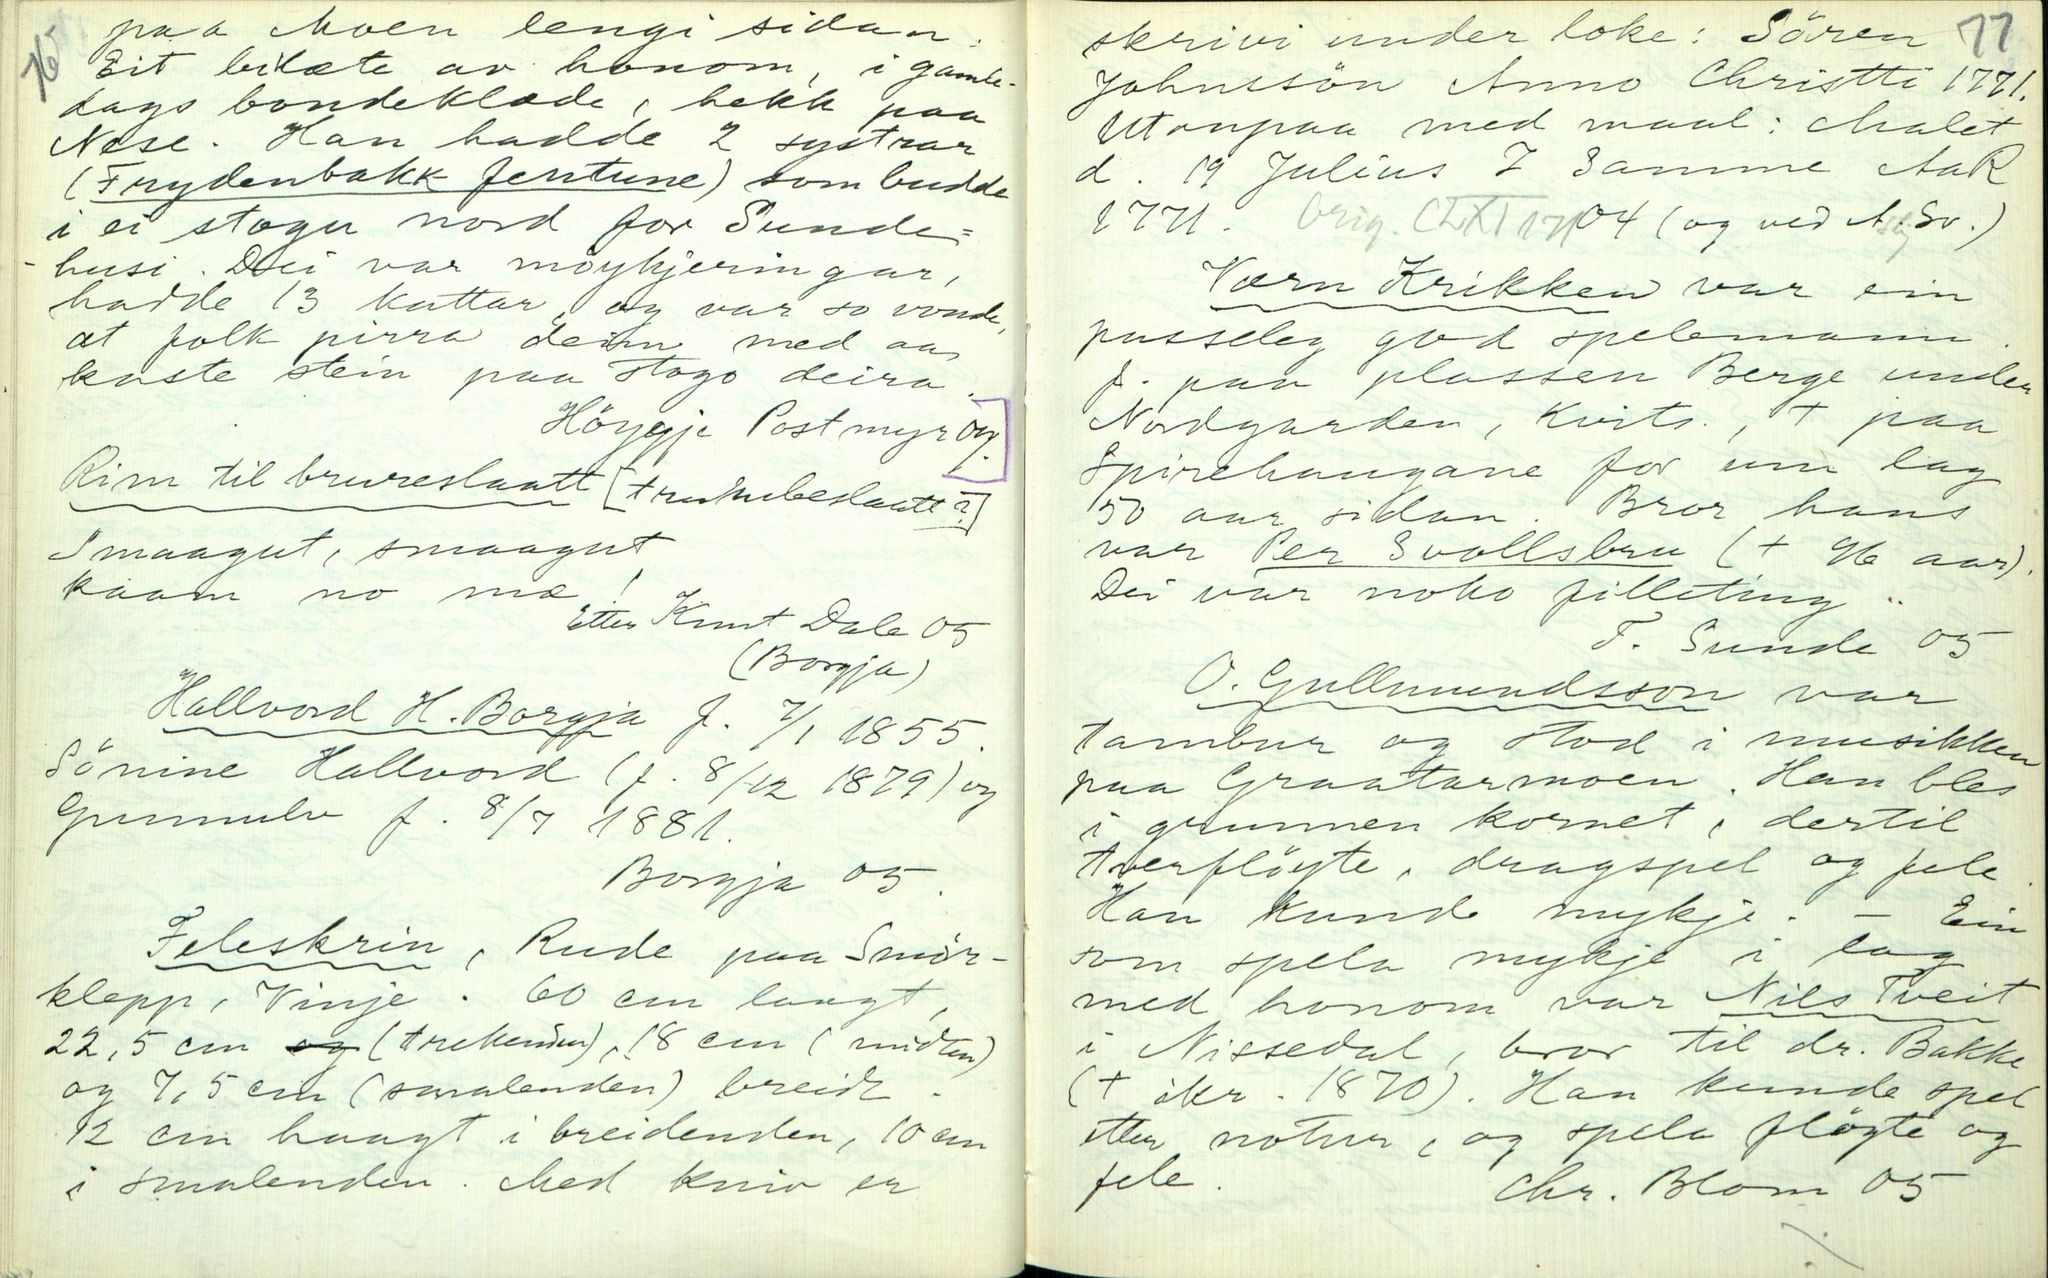 76
paa Moen lengi sidan.
Eit bilæte av honom, i gamle-
dags bondeklæde, hekk paa
Nese. Han hadde 2 systrar
(Frydenbakk jentune) som budde
i ei stogu nord for Sunde=
husi. Dei var möykjeringar,
hadde 13 kattar, og var so vonde,
at folk pirra deim med aa
kaste stein paa stogo deira.
Höyge Postmyr 04.
Rim til brureslaatt [trumbeslaatt?]
Smaagut, smaagut
kaam no mæ!
Etter Knut Dale 05
(Borgja)
Hallvord H. Borgja f. 7/1 1855.
Sönine Hallvord (f. 8/12 1879) og
Gunnulv f. 8/7 1881.
Borgja 05.
Feleskrin, Rude paa Smör-
klepp, Vinje. 60 cm langt,
22,5 cm og (trekenden), 18 cm (midten)
og 7,5 cm (smalenden) breidt.
12 cm haagt i breidenden, 10 cm
i smalenden. Med kniv er
77
skrivi under loke: Sören
Johnssön Anno Christti 1771.
Utanpaa med maal: Malet
d. 19 Julius I Samme AaR
1771. Orig. 04 (og ved A. Sv.)
Værn Krikken var ein
passeleg god spelemann.
f. paa plassen Berge under
Nordgarden, Kvits., + paa
Spirehaugane for um lag
50 aar sidan. Bror hans
var Per Svollsbru (+ 96 aar).
Dei var noko filleting..
T. Sunde 05
O. Gullmundsson var
tambur og stod i musikken
paa Graatarmoen. Han bles
i grunnen kornet, dertil
tverflöyte, dragspel og fele.
Han kunde mykje. – Ein
som spela mykje i lag
med honom var Nils Tveit
i Nissedal, bror til dr. Bakke
(+ ikr. 1870). Han kunde spel
etter notur, og spela flöyte og
fele. Chr. Blom 05